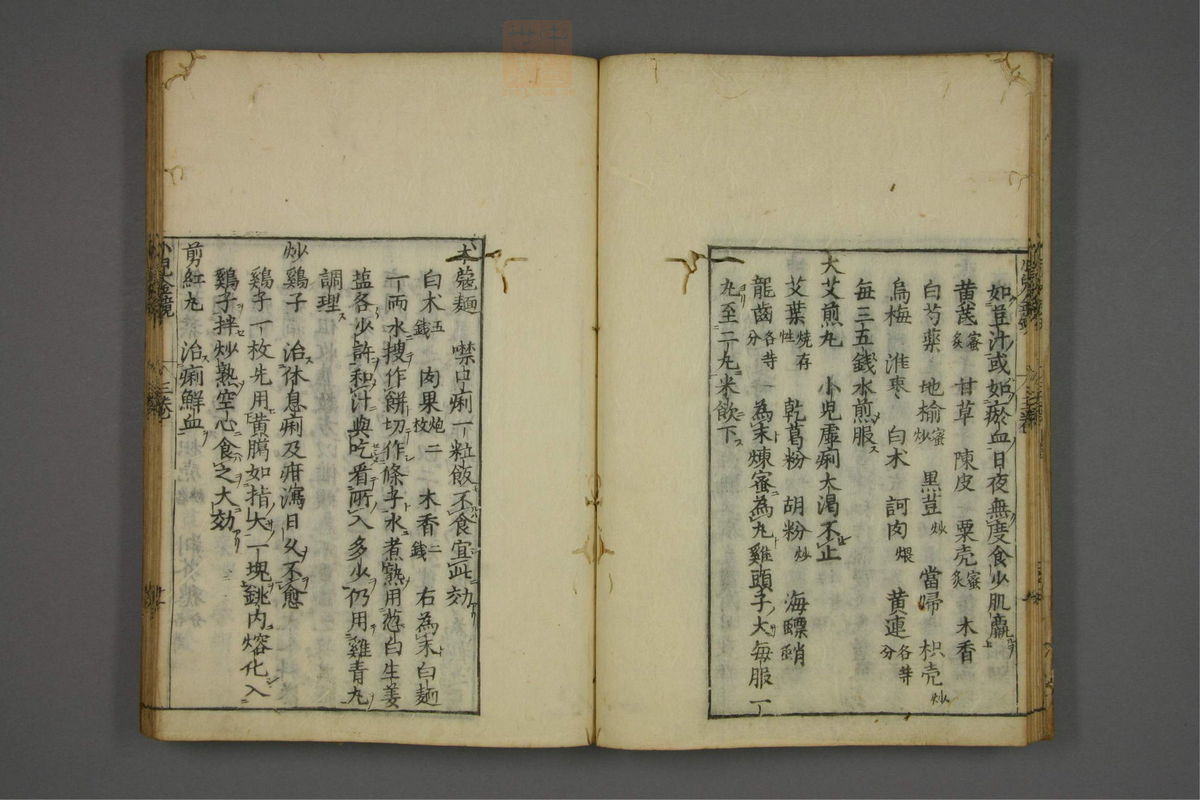 如豆汁或如瘀血日夜無度食少肌羸
黄芪蜜炙 甘草 陳皮 粟壳蜜炙 木香
白芍薬 地榆蜜炒 黒豆炒 當帰 枳壳炒
烏梅 淮棗 白术 訶肉煨 黄連各等分
毎三五銭水煎服
大艾煎丸 小児虚痢大渇不止
艾葉焼存性 乾葛粉 胡粉炒 海螵蛸
龍齒各等分 為末煉蜜為丸雞頭子大毎服一
丸至二丸米飲下
木蔻麺 噤口痢一粒飯不食宜此効
白术五銭 肉果炮二枚 木香二銭 右為末白麺
一両水搜作餅切作條子水煮熟用葱白生姜
塩各少許和汁與吃看所入多少仍用雞青丸
調理
炒鷄子 治休息痢及疳瀉日久不愈
鷄子一枚先用黄臈如指大一塊銚内熔化入
鷄子拌炒熟空心食之大効
剪紅丸 治痢鮮血